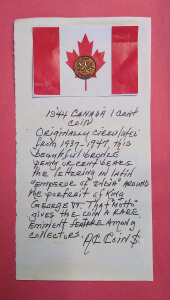 1944 CANADA 1 CENT
COIN
ORIGINALLY CIRCULATED
from 1937-1947, this
beautiful bronze
penny or cent bears
the lettering in latin
"emperor of India" AROUND
the portrait of King
George VI. That "motto"
gives the coin a rare
eminent feature among
collectors.
A1 Coin$